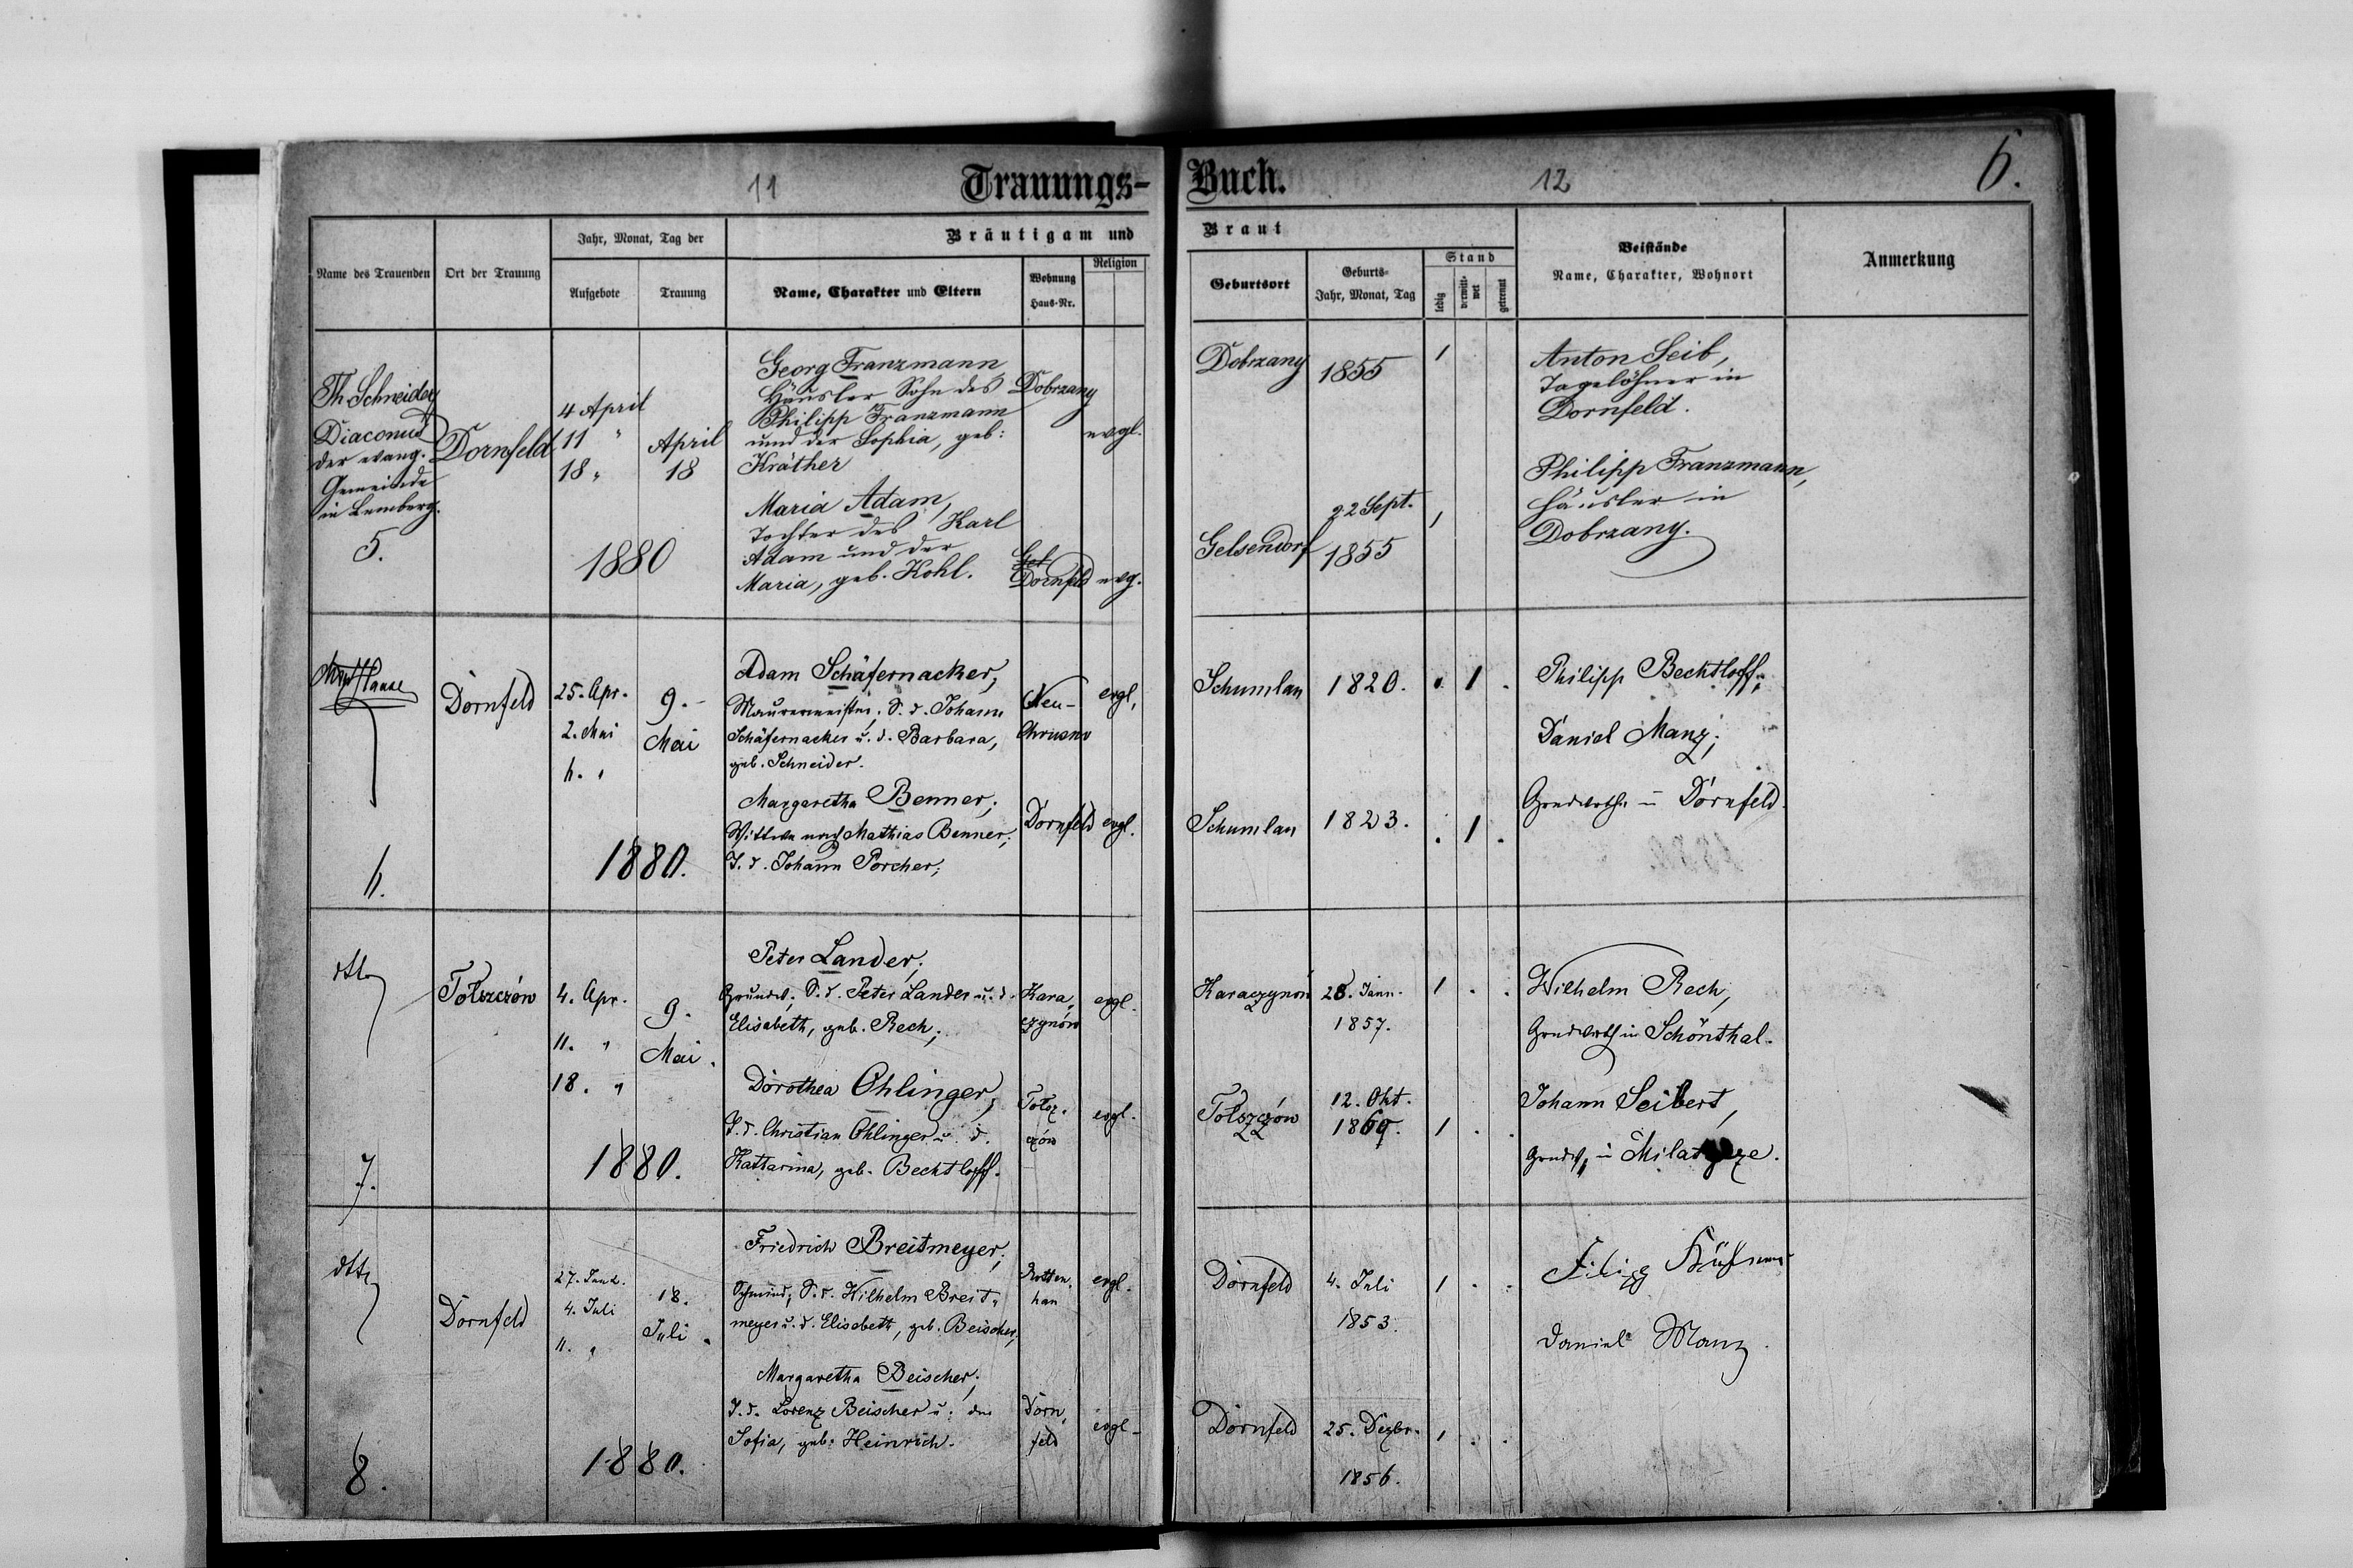 11
Trauungs-
Buch.
12
6.
Name des Trauenden
Ort der Trauung
Jahr, Monat, Tag der
Aufgebote
Trauung
Bräutigam und
Name, Charakter und Eltern
Wohnung
Haus-Nr.
Religion
Braut
Geburtsort
Geburts-
Jahr, Monat, Tag
Stand
ledig
verwitt-
wet
getrennt
Beistände
Name, Charakter, Wohnort
Anmerkung
Th Schneider
Diaconus
der evang.
Gemeinde
in Lemberg.
5.
Dornfeld
4 April
11 "
18 "
April
18
1880
Georg Franzmann
Häusler Sohn des
Philipp Franzmann
und der Sophia, geb:
Kräther
Dobrzany
evgl.
Maria Adam,
Tochter des Karl
Adam und der
Maria, geb. Kohl.
Gel
Dornfeld
evg.
Dobrzany
1855
1
Gelsendorf
22 Sept.
1855
1
Anton Seib,
Tagelöhner in
Dornfeld.
Philipp Franzmann,
Häusler in
Dobrzany.
6.
Dornfeld
25. Apr.
2. Mai
6. "
9.
Mai
1880.
Adam Schäfernacker,
Maurermeister, S. d. Johann
Schäfernacker u. d. Barbara,
geb. Schneider.
Neu-
Chrusno
evgl.
Margaretha Benner;
Wittwe nach Mathias Benner;
T. d. Johann Porcher;
Dornfeld
evgl.
Schumlau
1820.
. 1 .
Schumlau
1823.
. 1 .
Philipp Bechtloff;
Daniel Manz;
Grundwirthe in Dornfeld.
dtto
7.
Tołszczów
4. Apr.
11. "
18. "
9.
Mai.
1880.
Peter Lander;
Grundw; S. d. Peter Lander u. d.
Elisabeth, geb. Rech;
Kara,
czynów
evgl.
Dorothea Ohlinger,
T. d. Christian Ohlinger u. d.
Kattarina, geb. Bechtloff.
Tołsz,
czów
evgl.
Karaczynów
28. Jänn.
1857.
1 . .
Tołszczów
12. Okt.
1860.
1 . .
Wilhelm Rech,
Grundwirth in Schönthal.
Johann Seibert,
Grundw, in Milatycze.
dtto
8.
Dornfeld
27. Juni.
4. Juli
11. "
18.
Juli.
1880.
Friedrich Breitmeyer;
Schmied; S. d. Wilhelm Breit,
meyer u. d. Elisabeth, geb. Beischer,
Rotten,
han
evgl.
Margaretha Beischer;
T. d. Lorenz Beischer u. der
Sofia, geb. Heinrich.
Dorn,
feld
evgl.
Dornfeld
4. Juli
1853.
1 . .
Dornfeld
25. Dezbr.
1856.
1 . .
Filipp
Daniel Manz.